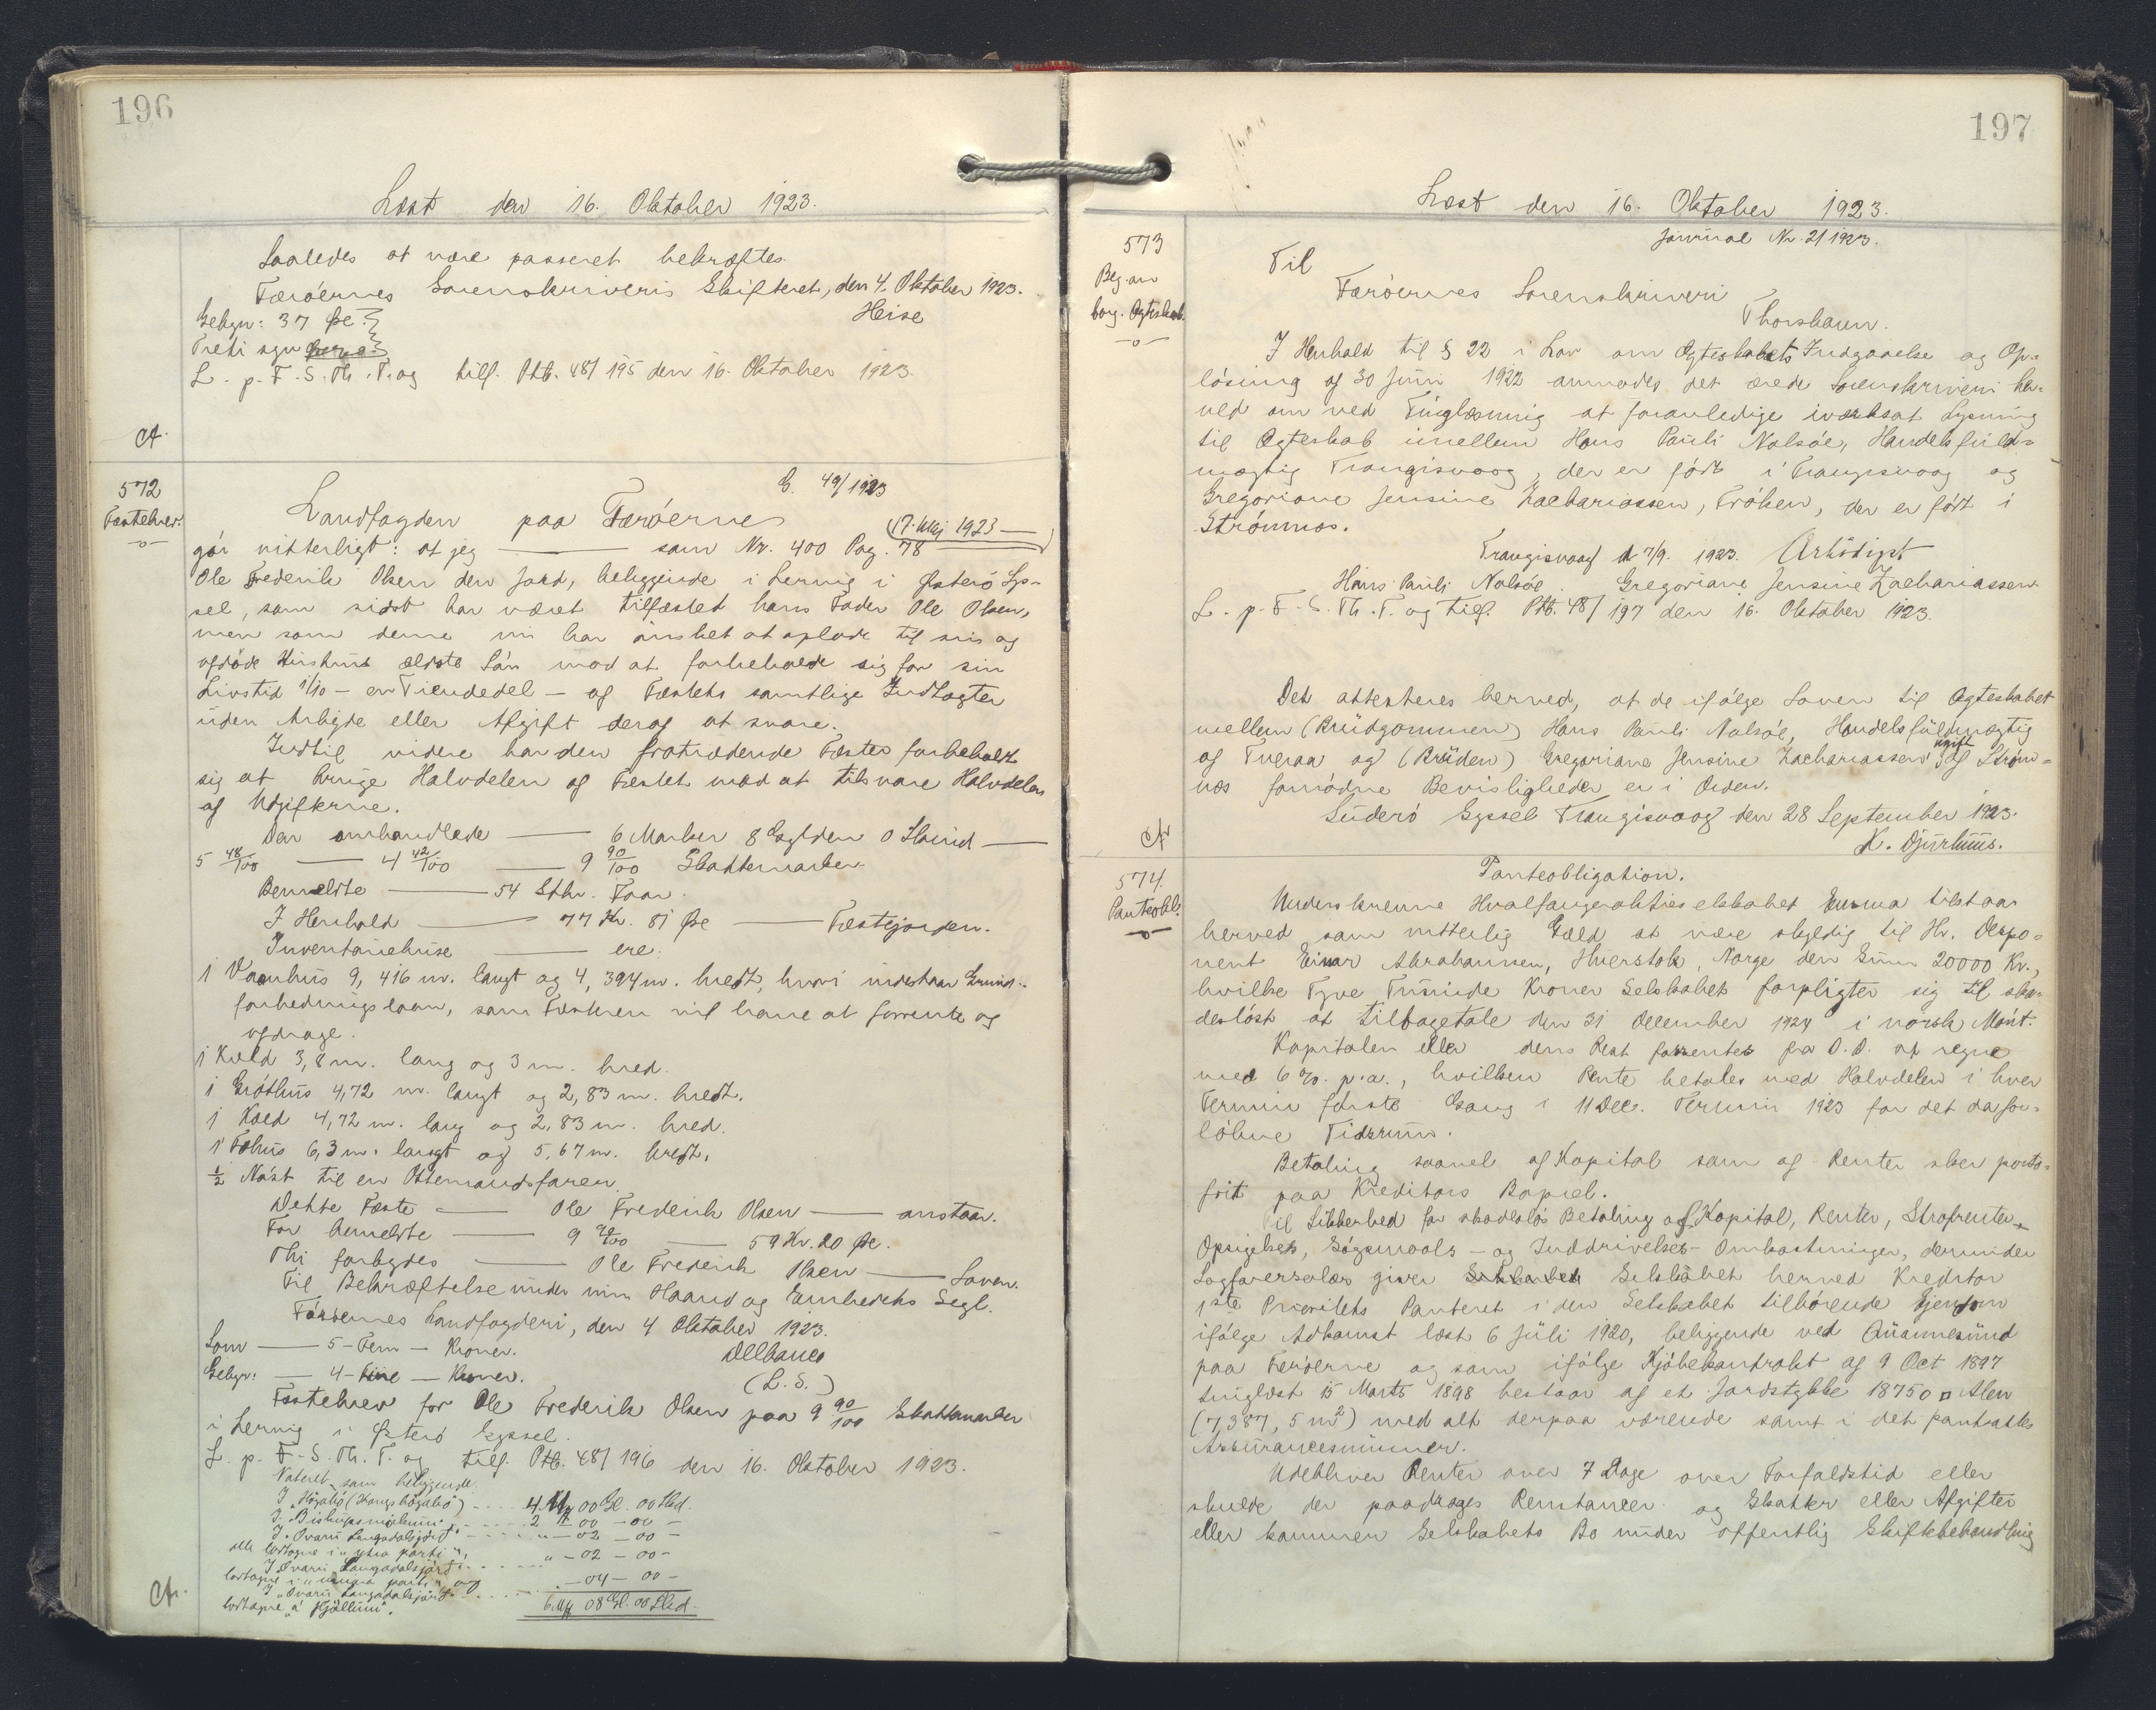 196
Læst den 16. Oktober 1923.
Saaledes at være passeret bekræftes.
Færöernes Sorenskriveris Skifteret, den 4. Oktober 1923.
Heise
Gebyr: 37 Øre
Treti syv Øre
L. p. F. S. Th. T. og tilf. Ptb. 48/195 den 16. Oktober 1923.
Cfr.
572
Fæstebrev.
G. 49/1923
Landfogden paa Færöerne
(17. Maj 1923 —
gör vitterligt: at jeg ——— som Nr. 400 Pag. 78
Ole Frederik Olsen den Jord, beliggende i Lervig i Østerö Sys-
sel, som sidst har været tilfæstet hans Fader Ole Olsen,
men som denne nu har önsket at oplade til sin og
afdöde Hustrus ældste Sön mod at forbeholde sig for sin
Livstid 1/10 — en Tiendedel — af Fæstets samtlige Indtægter
uden Arbejde eller Afgift deraf at svare.
Indtil videre har den fratrædende Fæster forbeholdt
sig at bruge Halvdelen af Fæstet mod at tilsvare Halvdelen
af Udgifterne.
Den omhandlede —— 6 Marker 8 Gylden 0 Skind ——
5 48/100 —— 4 42/100 —— 9 90/100 Skattemarker.
Bemeldte —— 54 Stkr. Faar.
I Henhold —— 77 Kr. 81 Øre —— Fæstejorden.
Inventariehuse —— ere:
1 Vaanhus 9,416 m. langt og 4,394 m. bredt, hvori indestaar Grund-
forbedringslaan, som Fæsteren vil have at forrente og
afdrage.
1 Kield 3,8 m. lang og 3 m. bred.
1 Gróthus 4,72 m. langt og 2,83 m. bredt.
1 Kold 4,72 m. lang og 2,83 m. bred.
1 Fæhus 6,3 m. langt og 5,67 m. bredt.
1/2 Nöst til en Ottemandsfaren.
Dette Fæste —— Ole Frederik Olsen —— anstaar.
For bemeldte —— 9 90/100 —— 59 Kr. 20 Øre.
Thi forbydes —— Ole Frederik Olsen —— Loven.
Til Bekræftelse under min Haand og Embedets Segl.
Färöernes Landfogderi, den 4 Oktober 1923.
Som —— 5 - Fem - Kroner.
Dellbanco
Gebyr: — 4 - Fire — Kroner.
(L. S.)
Fæstebrev for Ole Frederik Olsen paa 9 90/100 Skattemarker
i Lervig i Østerö Syssel.
L. p. F. S. Th. T. og tilf. Ptb. 48/196 den 16. Oktober 1923.
Noteret som beliggende
I "Högabö (Kongshögabö) .... 4 Mk 00 Gl. 00 Skd.
I "Biskupsmörkum" .... 2 " 00 - 00 -
I "Ovaru Langadalsjörd" .... " - 02 - 00 -
alle lodtagne i "ytra parti",
I "Ovaru Langadalsjörd" .... " - 02 - 00 -
lodtagne i "innara parti" og
I "Ovaru Langadalsjörd" .... - 04 - 00 -
lodtagne "á Hjöllum".
6 Mk 08 Gl. 00 Skd.
Cfr.
197
Læst den 16. Oktober 1923.
Journal Nr. 21 1923.
573
Beg. om
borg. Ægteskab.
Til
Færöernes Sorenskriveri
Thorshavn.
I Henhold til § 22 i Lov om Ægteskabets Indgaaelse og Op-
lösning af 30 Juni 1922 anmodes det ærede Sorenskriveri her-
ved om ved Tinglæsning at foranledige iværksat Lysning
til Ægteskab imellem Hans Pauli Nolsöe, Handelsfuld-
mægtig Trangisvaag, der er födt i Trangisvaag og
Gregoriane Jensine Zachariassen, Fröken, der er födt i
Strömnæs.
Trangisvaag d. 7/9. 1923. Ærbödigst
Hans Pauli Nolsöe. Gregoriane Jensine Zachariassen.
L. p. F. S. Th. T. og tilf. Ptb. 48/197 den 16. Oktober 1923.
Det attesteres herved, at de ifölge Loven til Ægteskabet
mellem (Brudgommen) Hans Pauli Nolsöe, Handelsfuldmægtig
af Tveraa og (Bruden) Gregoriane Jensine Zachariassen, ugift af Ström-
næs fornödne Bevisligheder er i Orden.
Suderö Syssel Trangisvaag den 28 September 1923.
K. Djurhuus.
Cfr
574.
Panteobl.
Panteobligation.
Underskrevne Hvalfangeraktieselskabet Emma tilstaar
herved som vitterlig Gæld at være skyldig til Hr. Dispo-
nent Einar Abrahamsen, Huerstok, Norge den Sum 20000 Kr.,
hvilke Tyve Tusinde Kroner Selskabet forpligter sig til ska-
deslöst at tilbagetale den 31 December 1924 i norsk Mönt.
Kapitalen eller dens Rest forrentes fra D. D. at regne
med 6 %. p. a., hvilken Rente betales med Halvdelen i hver
Termin förste Gang i 11 Dec. Termin 1923 for det da for-
löbne Tidsrum.
Betaling saavel af Kapital som af Renter sker porto-
frit paa Kreditors Bopæl.
Til Sikkerhed for skadeslös Betaling af Kapital, Renter, Strafrenter,
Opsigelses, Sögsmaals- og Inddrivelses-Omkostninger, derunder
Sagförersalær giver Selskabet herved Kreditor
1ste Prioritets Panteret i den Selskabet tilhörende Ejendom
ifölge Adkomst læst 6 Juli 1920, beliggende ved Quannesund
paa Færöerne og som ifölge Kjöbekontrakt af 9 Oct 1897
tinglæst 15 Marts 1898 bestaar af et Jordstykke 18750 □ Alen
(7,387,5 m²) med alt derpaa værende samt i det pantsattes
Assurancesummer.
Udebliver Renter over 7 Dage over Forfaldstid eller
skulde der paadrages Renstancer og Skatter eller Afgifter
eller kommer Selskabets Bo under offentlig Skiftebehandling